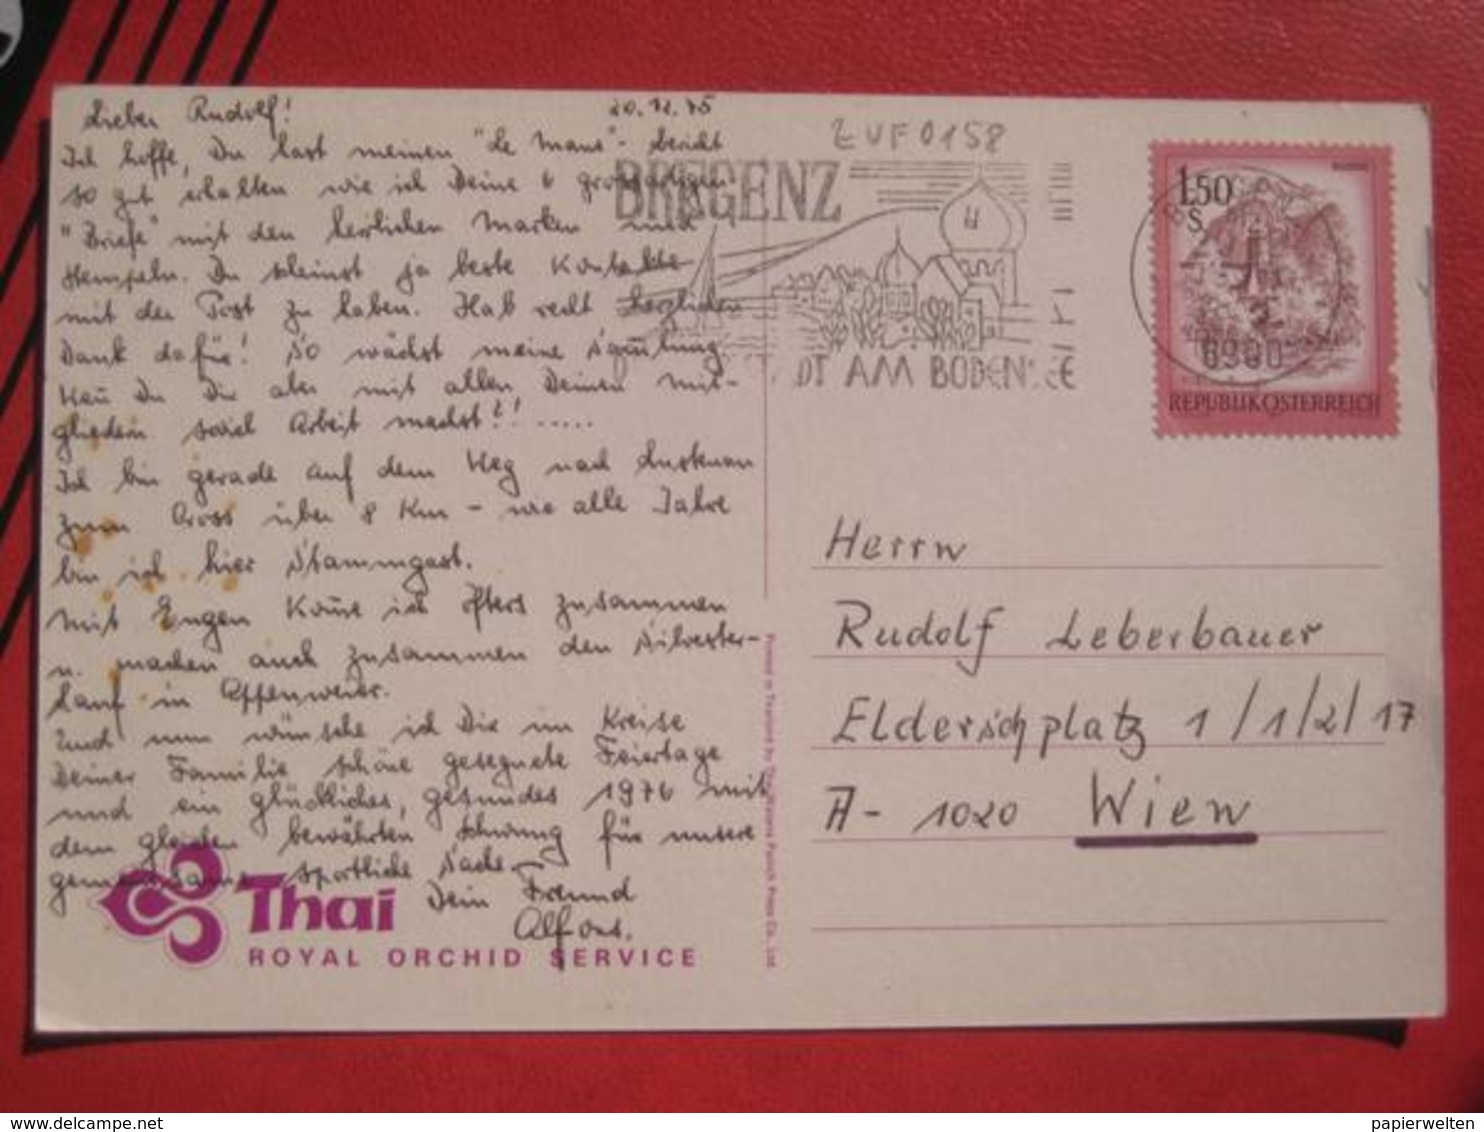 Lieber Rudolf! 20.12.75
Ich hoffe, Du hast meinen "Le Mans"- Bericht
so gut erhalten wie ich Deine 6 großartigen
"Briefe" mit den herrlichen Marken und
Stempeln. Du scheinst ja beste Kontakte
mit der Post zu haben. Hab recht herzlichen
Dank dafür! So wächst meine Sammlung
Wenn Du Dir aber mit allen Deinen Mit-
gliedern soviel Arbeit machst?! .....
Ich bin gerade auf dem Weg nach Lustenau
zum Cross über 8 Km - wie alle Jahre
bin ich hier Stammgast.
Mit Eugen komme ich öfters zusammen
u. machen auch zusammen den Silvester-
lauf in Appenweier.
Und nun wünsche ich Dir im Kreise
Deiner Familie schöne gesegnete Feiertage
und ein glückliches, gesundes 1976 mit
dem gleichen bewährten Schwung für unsere
gemeinsame sportliche Sache.
Dein Freund
Alfons.
Thai
ROYAL ORCHID SERVICE
ZVF0158
BREGENZ
STADT AM BODENSEE
1.50
S
6900
REPUBLIK ÖSTERREICH
Herrn
Rudolf Leberbauer
Elderschplatz 1/1/2/17
A- 1020 Wien
delcampe.net
papierwelten